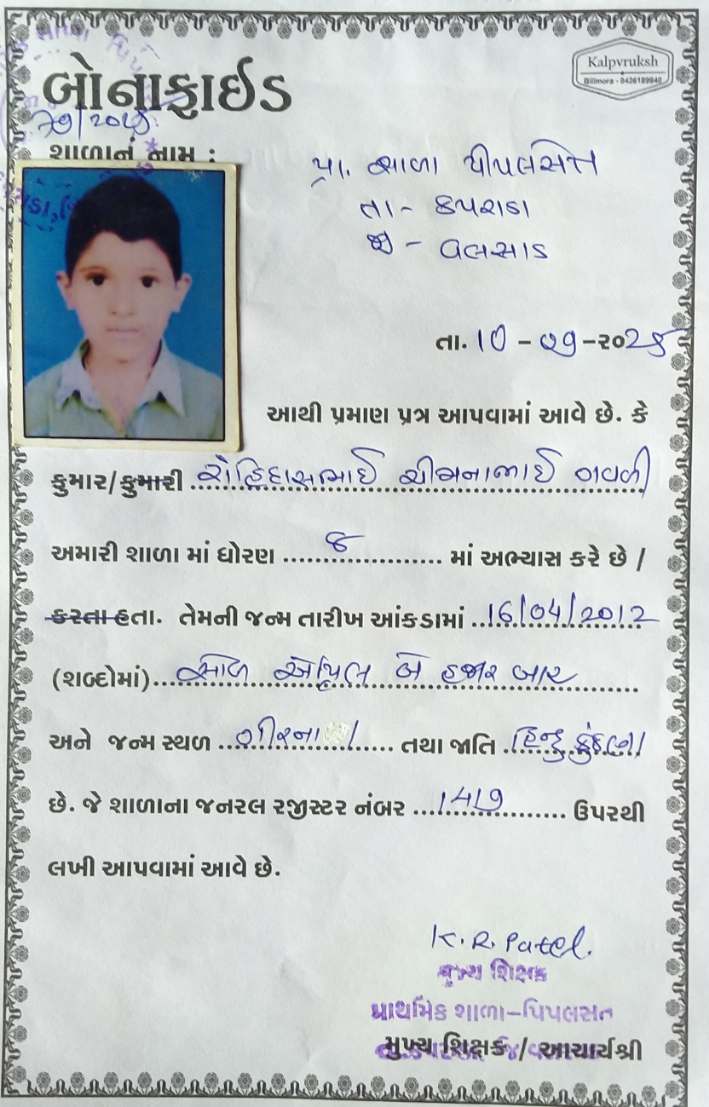 Kalpvruksh
Bilimora - 9426189840
બોનાફાઈડ
શાળાનું નામ :
પ્રા. શાળા પીપલસેત
તા - કપરાડા
જી - વલસાડ
તા. 10 - 07 - ૨૦25
આથી પ્રમાણ પત્ર આપવામાં આવે છે. કે
કુમાર/કુમારી રોહિદાસભાઈ ચીમનાભાઈ ગવળી
અમારી શાળા માં ધોરણ 8 માં અભ્યાસ કરે છે /
કરતા હતા. તેમની જન્મ તારીખ આંકડામાં 16/04/2012
(શબ્દોમાં) સોળ એપ્રિલ બે હજાર બાર
અને જન્મ સ્થળ તથા જાતિ હિન્દુ
છે. જે શાળાના જનરલ રજીસ્ટર નંબર 1419 ઉપરથી
લખી આપવામાં આવે છે.
K. R. Patel.
મુખ્ય શિક્ષક
પ્રાથમિક શાળા-પિપલસેત
મુખ્ય શિક્ષક / આચાર્યશ્રી